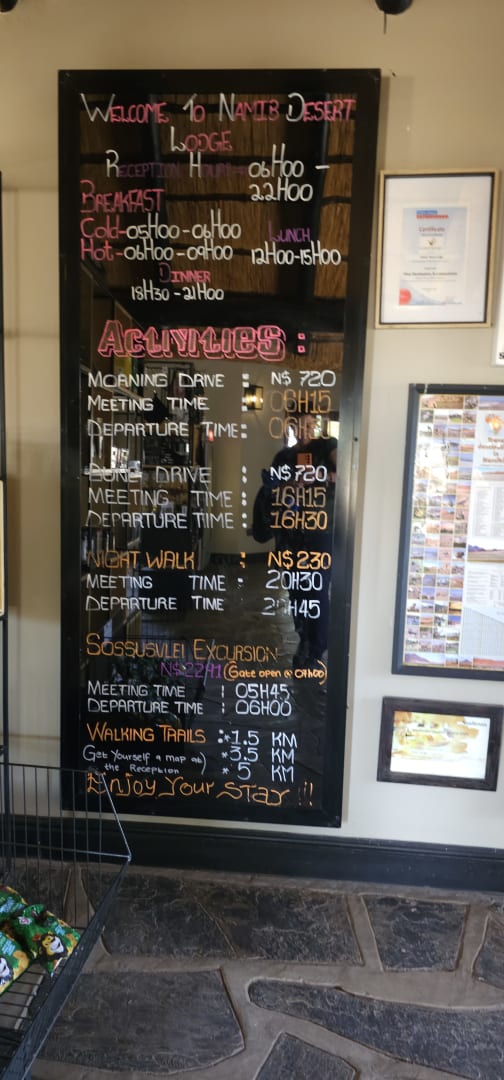 WELCOME TO NAMIB DESERT
LODGE
RECEPTION HOURS 06H00 -
22H00
BREAKFAST
Cold-05H00-06H00
Hot-06H00-09H00
LUNCH
12H00-15H00
DINNER
18H30-21H00
ACTIVITIES :
MORNING DRIVE : N$ 720
MEETING TIME : 06H15
DEPARTURE TIME:
DUNE DRIVE : N$720
MEETING TIME : 16H15
DEPARTURE TIME: 16H30
NIGHT WALK : N$230
MEETING TIME : 20H30
DEPARTURE TIME : 20H45
SOSSUSVLEI EXCURSION
N$2291 (Gate open @ 07H00)
MEETING TIME : 05H45
DEPARTURE TIME : 06H00
WALKING TRAILS :*1.5 KM
(Get yourself a map at *3.5 KM
the Reception) * 5 KM
ENJOY YOUR STAY !!!
Certificate